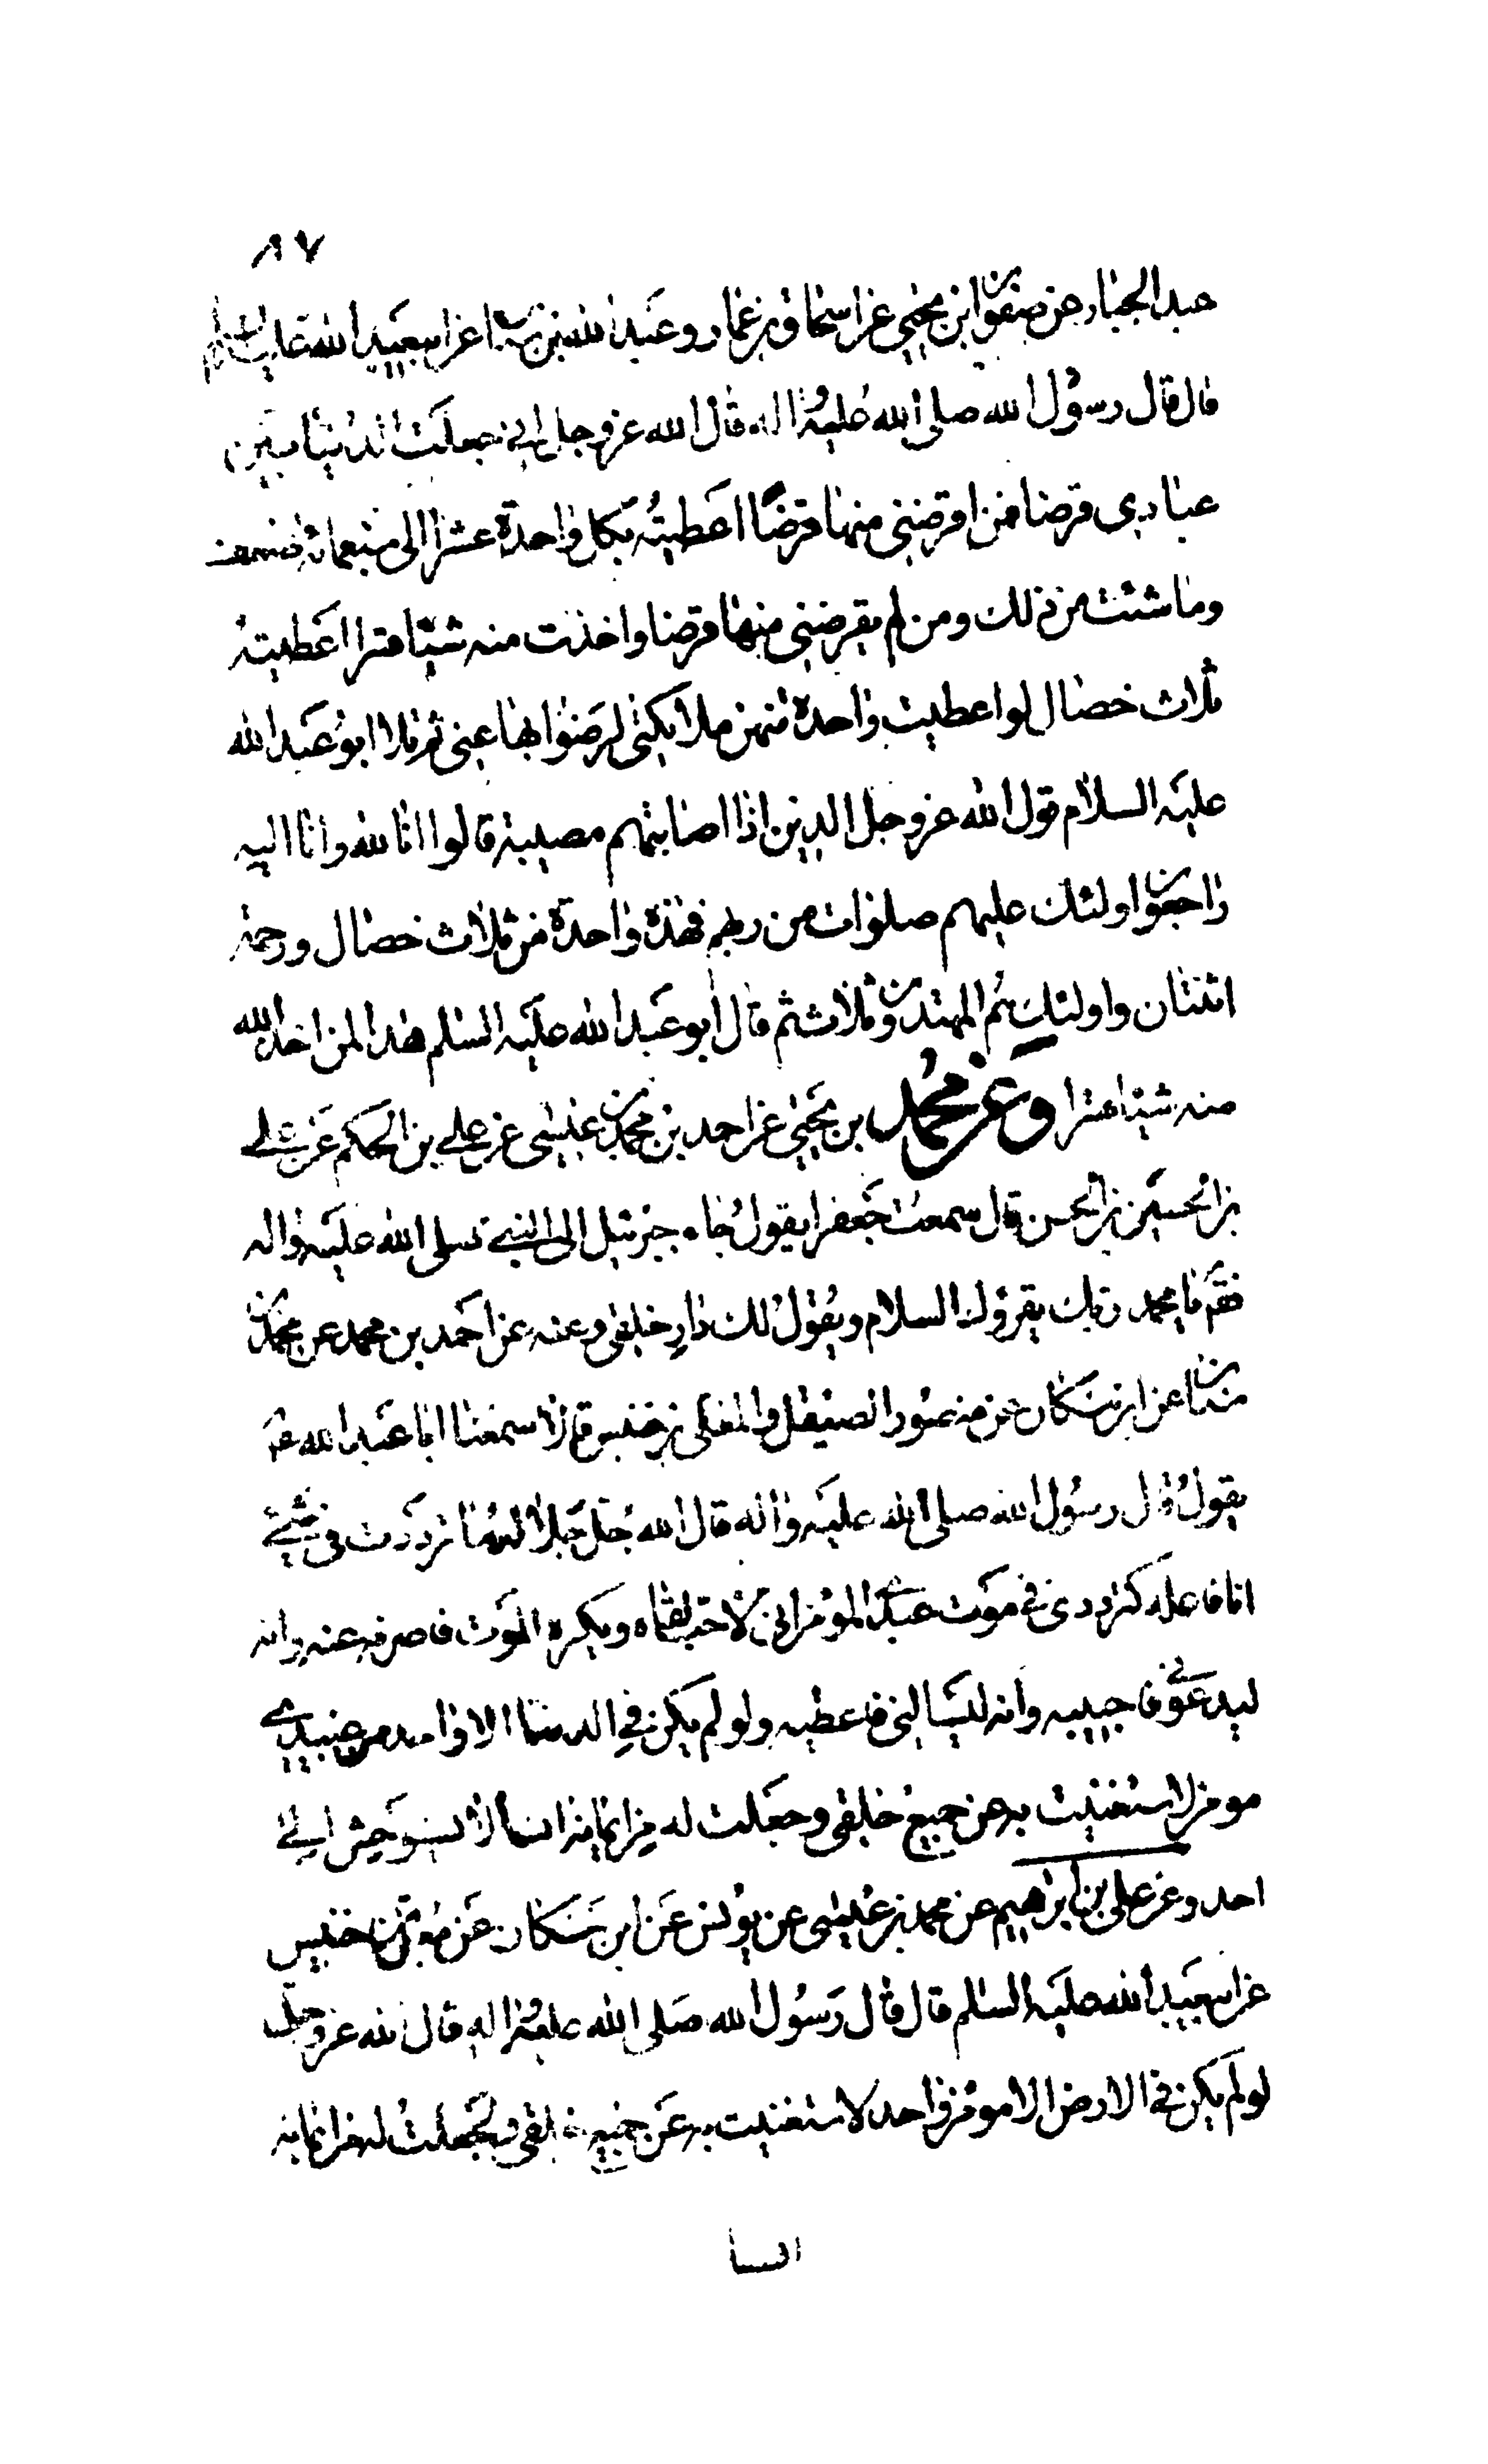 ٨٧
عبد الجبار عن صفوان بن يحيى عن اسحاق بن عمار وعبد الله بن سنان عن ابيعبد الله عليه السلام
قال قال رسول الله صلى الله عليه واله قال الله عز وجل اني جعلت الدنيا بين
عبادي قرضا فمن اقرضني منها قرضا اعطيته بكل واحدة عشرا الى سبعمائة ضعف
وما شئت من ذلك ومن لم يقرضني منها قرضا واخذت منه شيئا قسرا اعطيته
ثلاث خصال لو اعطيت واحدة منهن ملائكتي لرضوا بها عني ثم تلا ابو عبد الله
عليه السلام قول الله عز وجل الذين اذا اصابتهم مصيبة قالوا انا لله وانا اليه
راجعون اولئك عليهم صلوات من ربهم فهذه واحدة من ثلاث خصال ورحمة
اثنتان واولئك هم المهتدون ثلاث ثم قال ابو عبد الله عليه السلم هذا لمن اخذ الله
منه شيئا قسرا وعن محمد بن يحيى عن احمد بن محمد بن عيسى عن علي بن الحكم عن علي
بن الحسين بن الحسن قال سمعت جعفرا يقول جاء جبرئيل الى النبي صلى الله عليه واله
فقال يا محمد ربك يقرؤك السلام ويقول لك دار خلقي وعنه عن احمد بن محمد عن محمد بن
سنان عن ابن مسكان عن منصور الصيقل والمعلى بن خنيس قالا سمعنا ابا عبد الله عم
يقول قال رسول الله صلى الله عليه واله قال الله جل جلاله ما ترددت في شيء
انا فاعله كترددي في موت عبدي المؤمن انني لاحب لقاه ويكره الموت فاصرفه عنه وانه
ليدعوني فاجيبه وانه ليسالني فاعطيه ولو لم يكن في الدنيا الا واحد من عبيدي
مومن لاستغنيت به عن جميع خلقي وجعلت له من ايمانه انسا لا يستوحش الى
احد وعن علي بن ابراهيم عن محمد بن عيسى عن يونس عن ابن مسكان عن معلى بن خنيس
عن ابيعبد الله عليه السلم قال قال رسول الله صلى الله عليه واله قال الله عز وجل
لو لم يكن في الارض الا مومن واحد لاستغنيت به عن جميع خلقي ولجعلت له من ايمانه
انسا